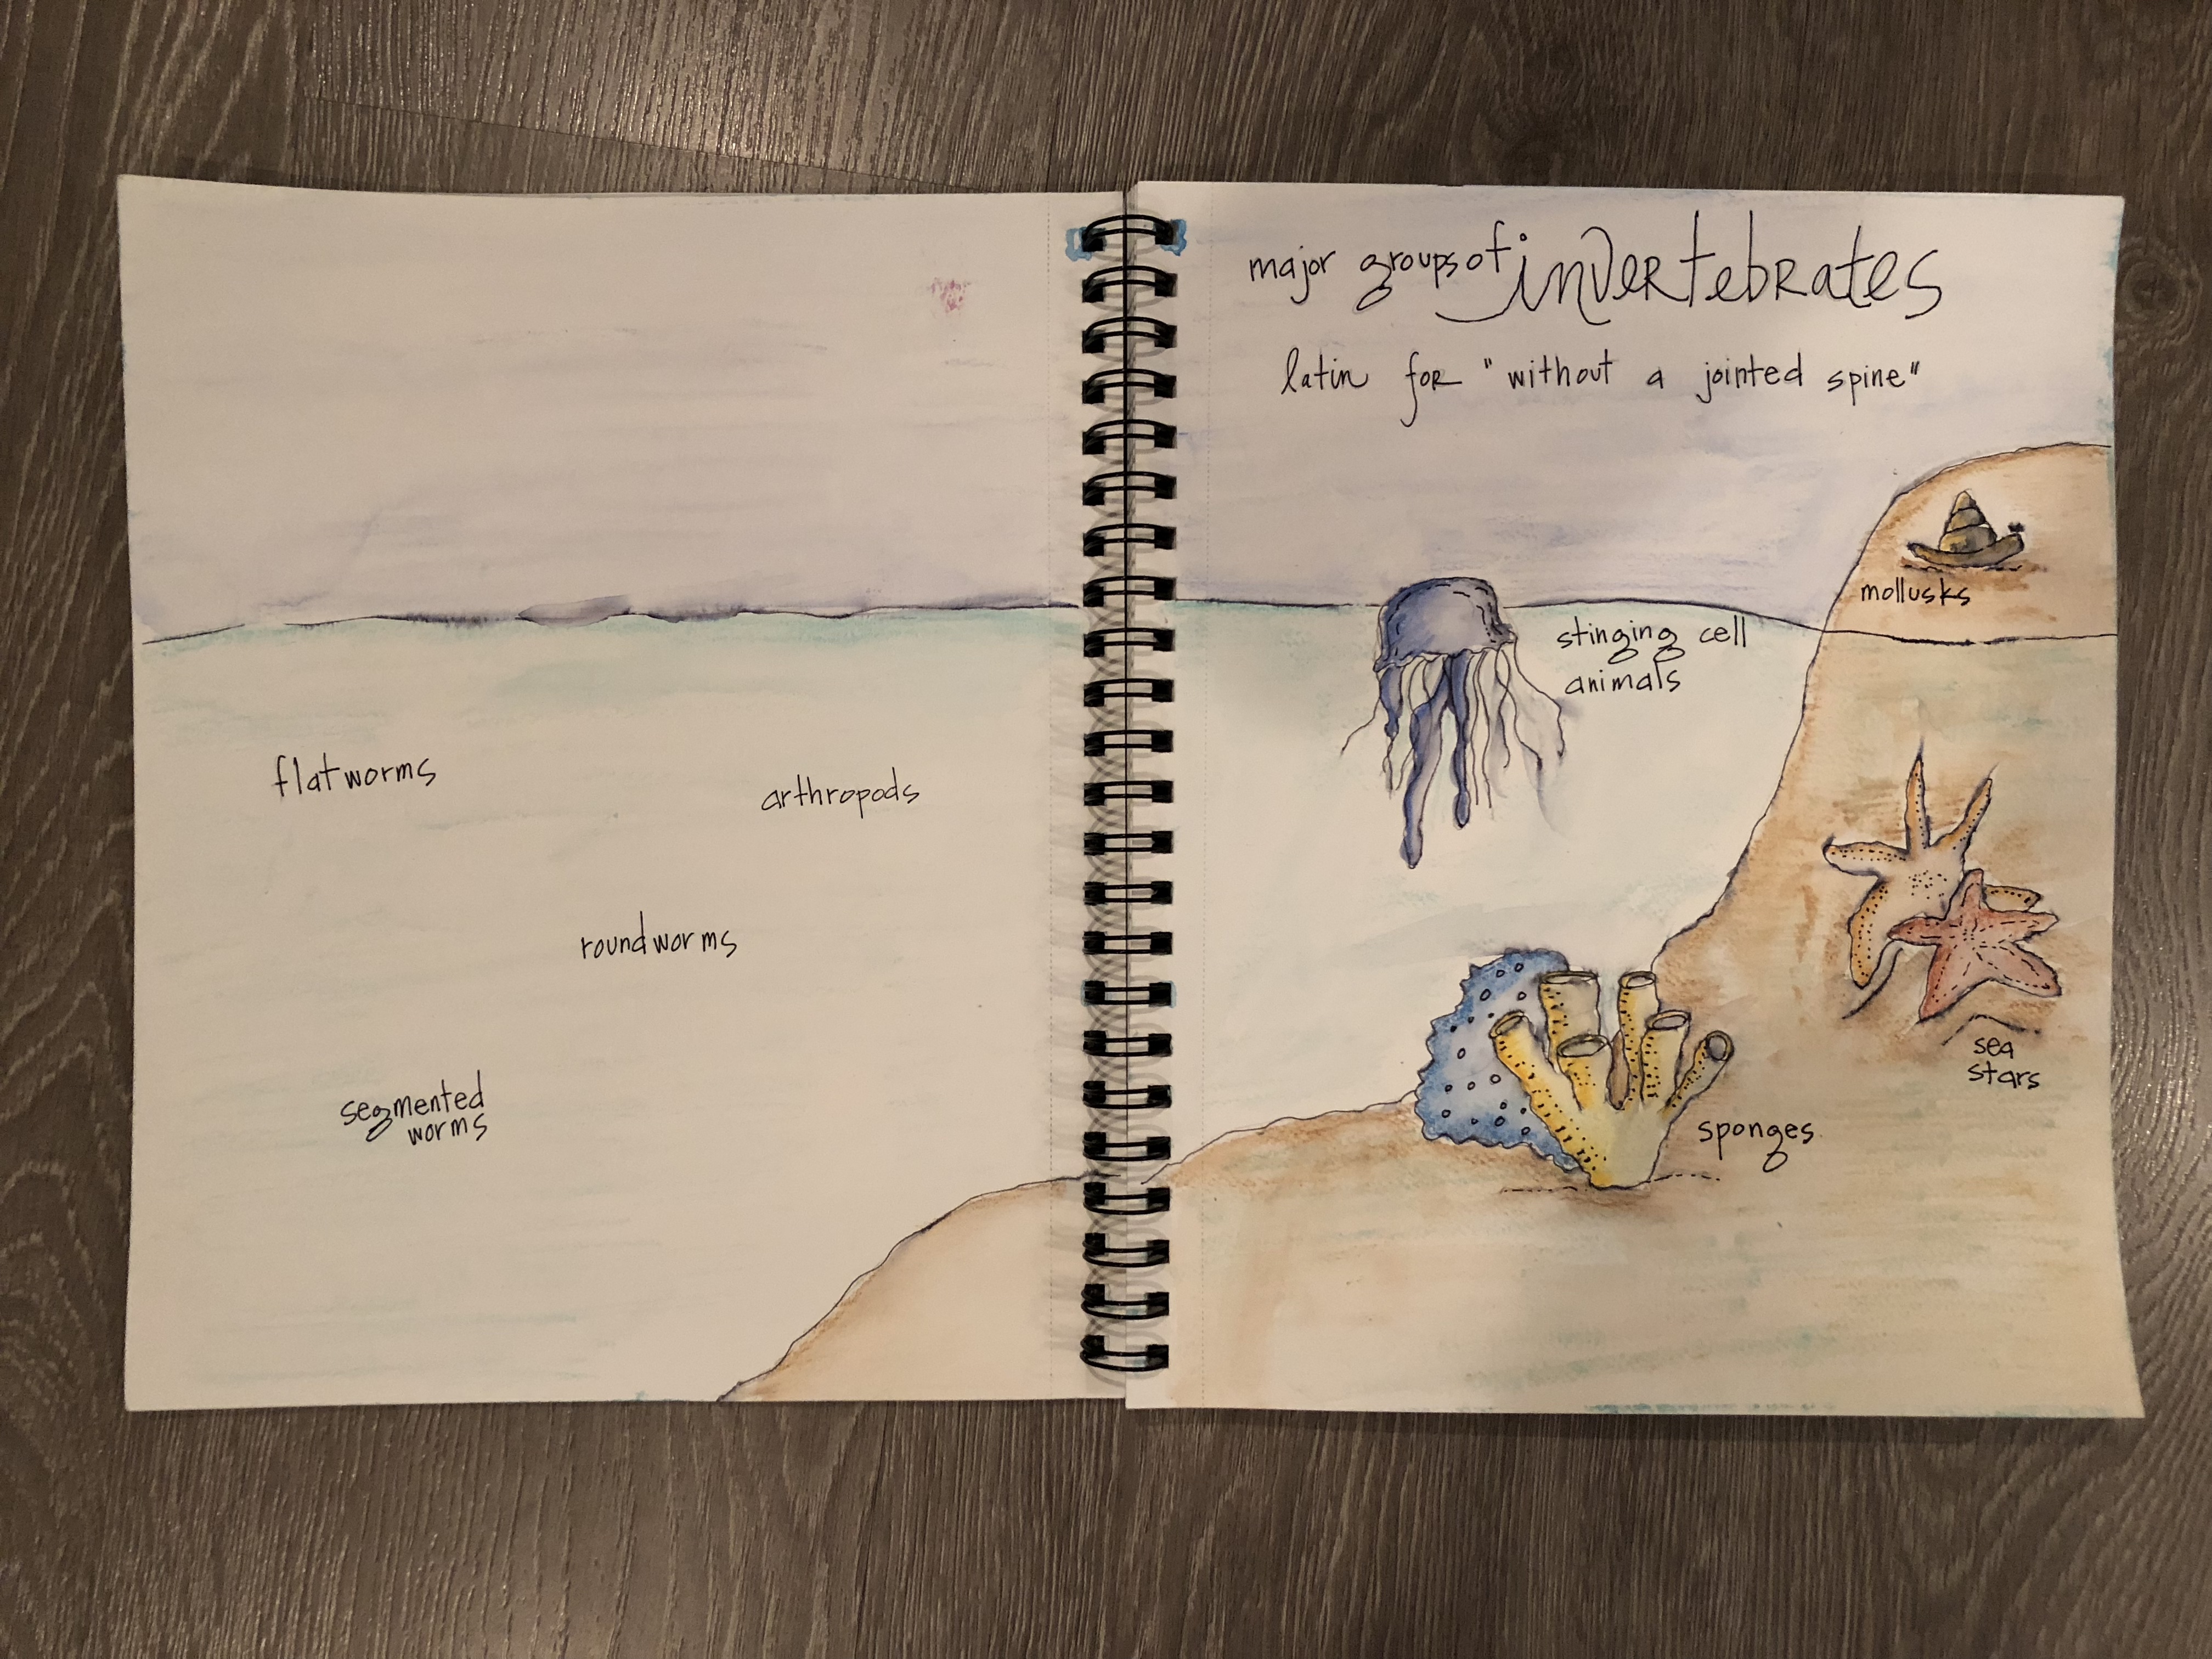 flatworms
arthropods
roundworms
segmented
worms
major groups of invertebrates
latin for "without a jointed spine"
mollusks
stinging cell
animals
sea
stars
sponges